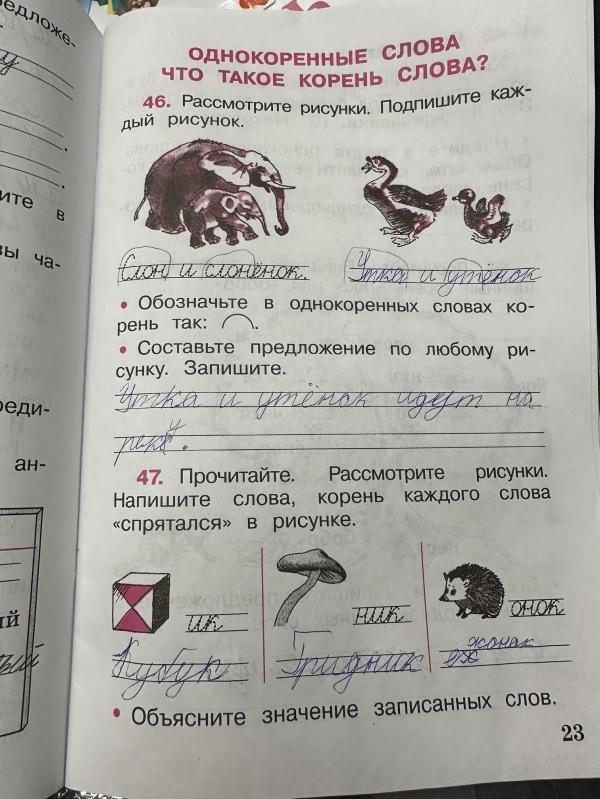 едложе-
у
ите в
вы ча-
реди-
ан-
ий
ый
ОДНОКОРЕННЫЕ СЛОВА
ЧТО ТАКОЕ КОРЕНЬ СЛОВА?
46. Рассмотрите рисунки. Подпишите каж-
дый рисунок.
Слон и слонёнок. Утка и утёнок
• Обозначьте в однокоренных словах ко-
рень так: .
• Составьте предложение по любому ри-
сунку. Запишите.
Утка и утёнок идут на
реку.
47. Прочитайте. Рассмотрите рисунки.
Напишите слова, корень каждого слова
«спрятался» в рисунке.
ик ник онок
Кубук Гридник ежонак
• Объясните значение записанных слов.
23